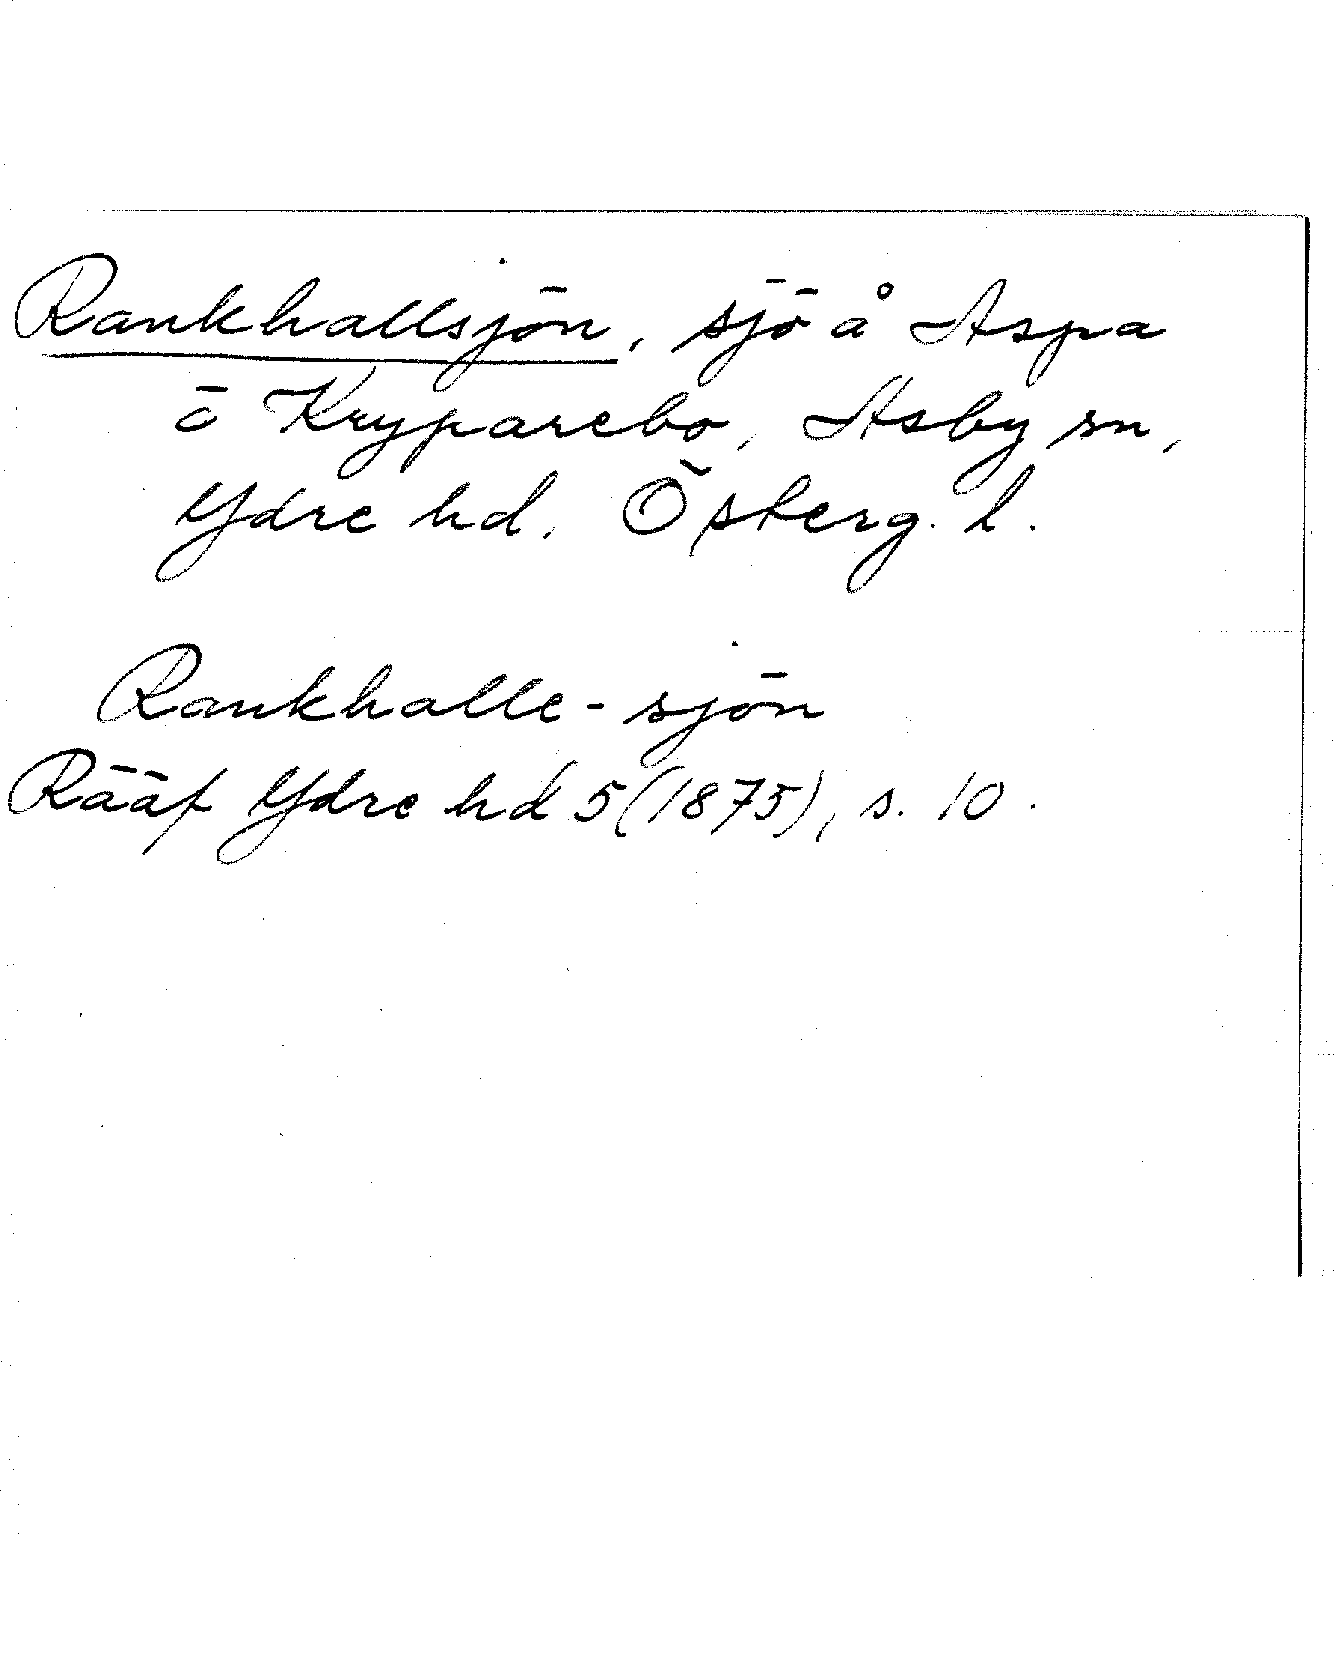 Rankhallsjön, sjö å Aspa
o Kryparebo, Asby sn,
Ydre hd. Österg. l.
Rankhalle-sjön
Rääf Ydre hd 5 (1875), s. 10.